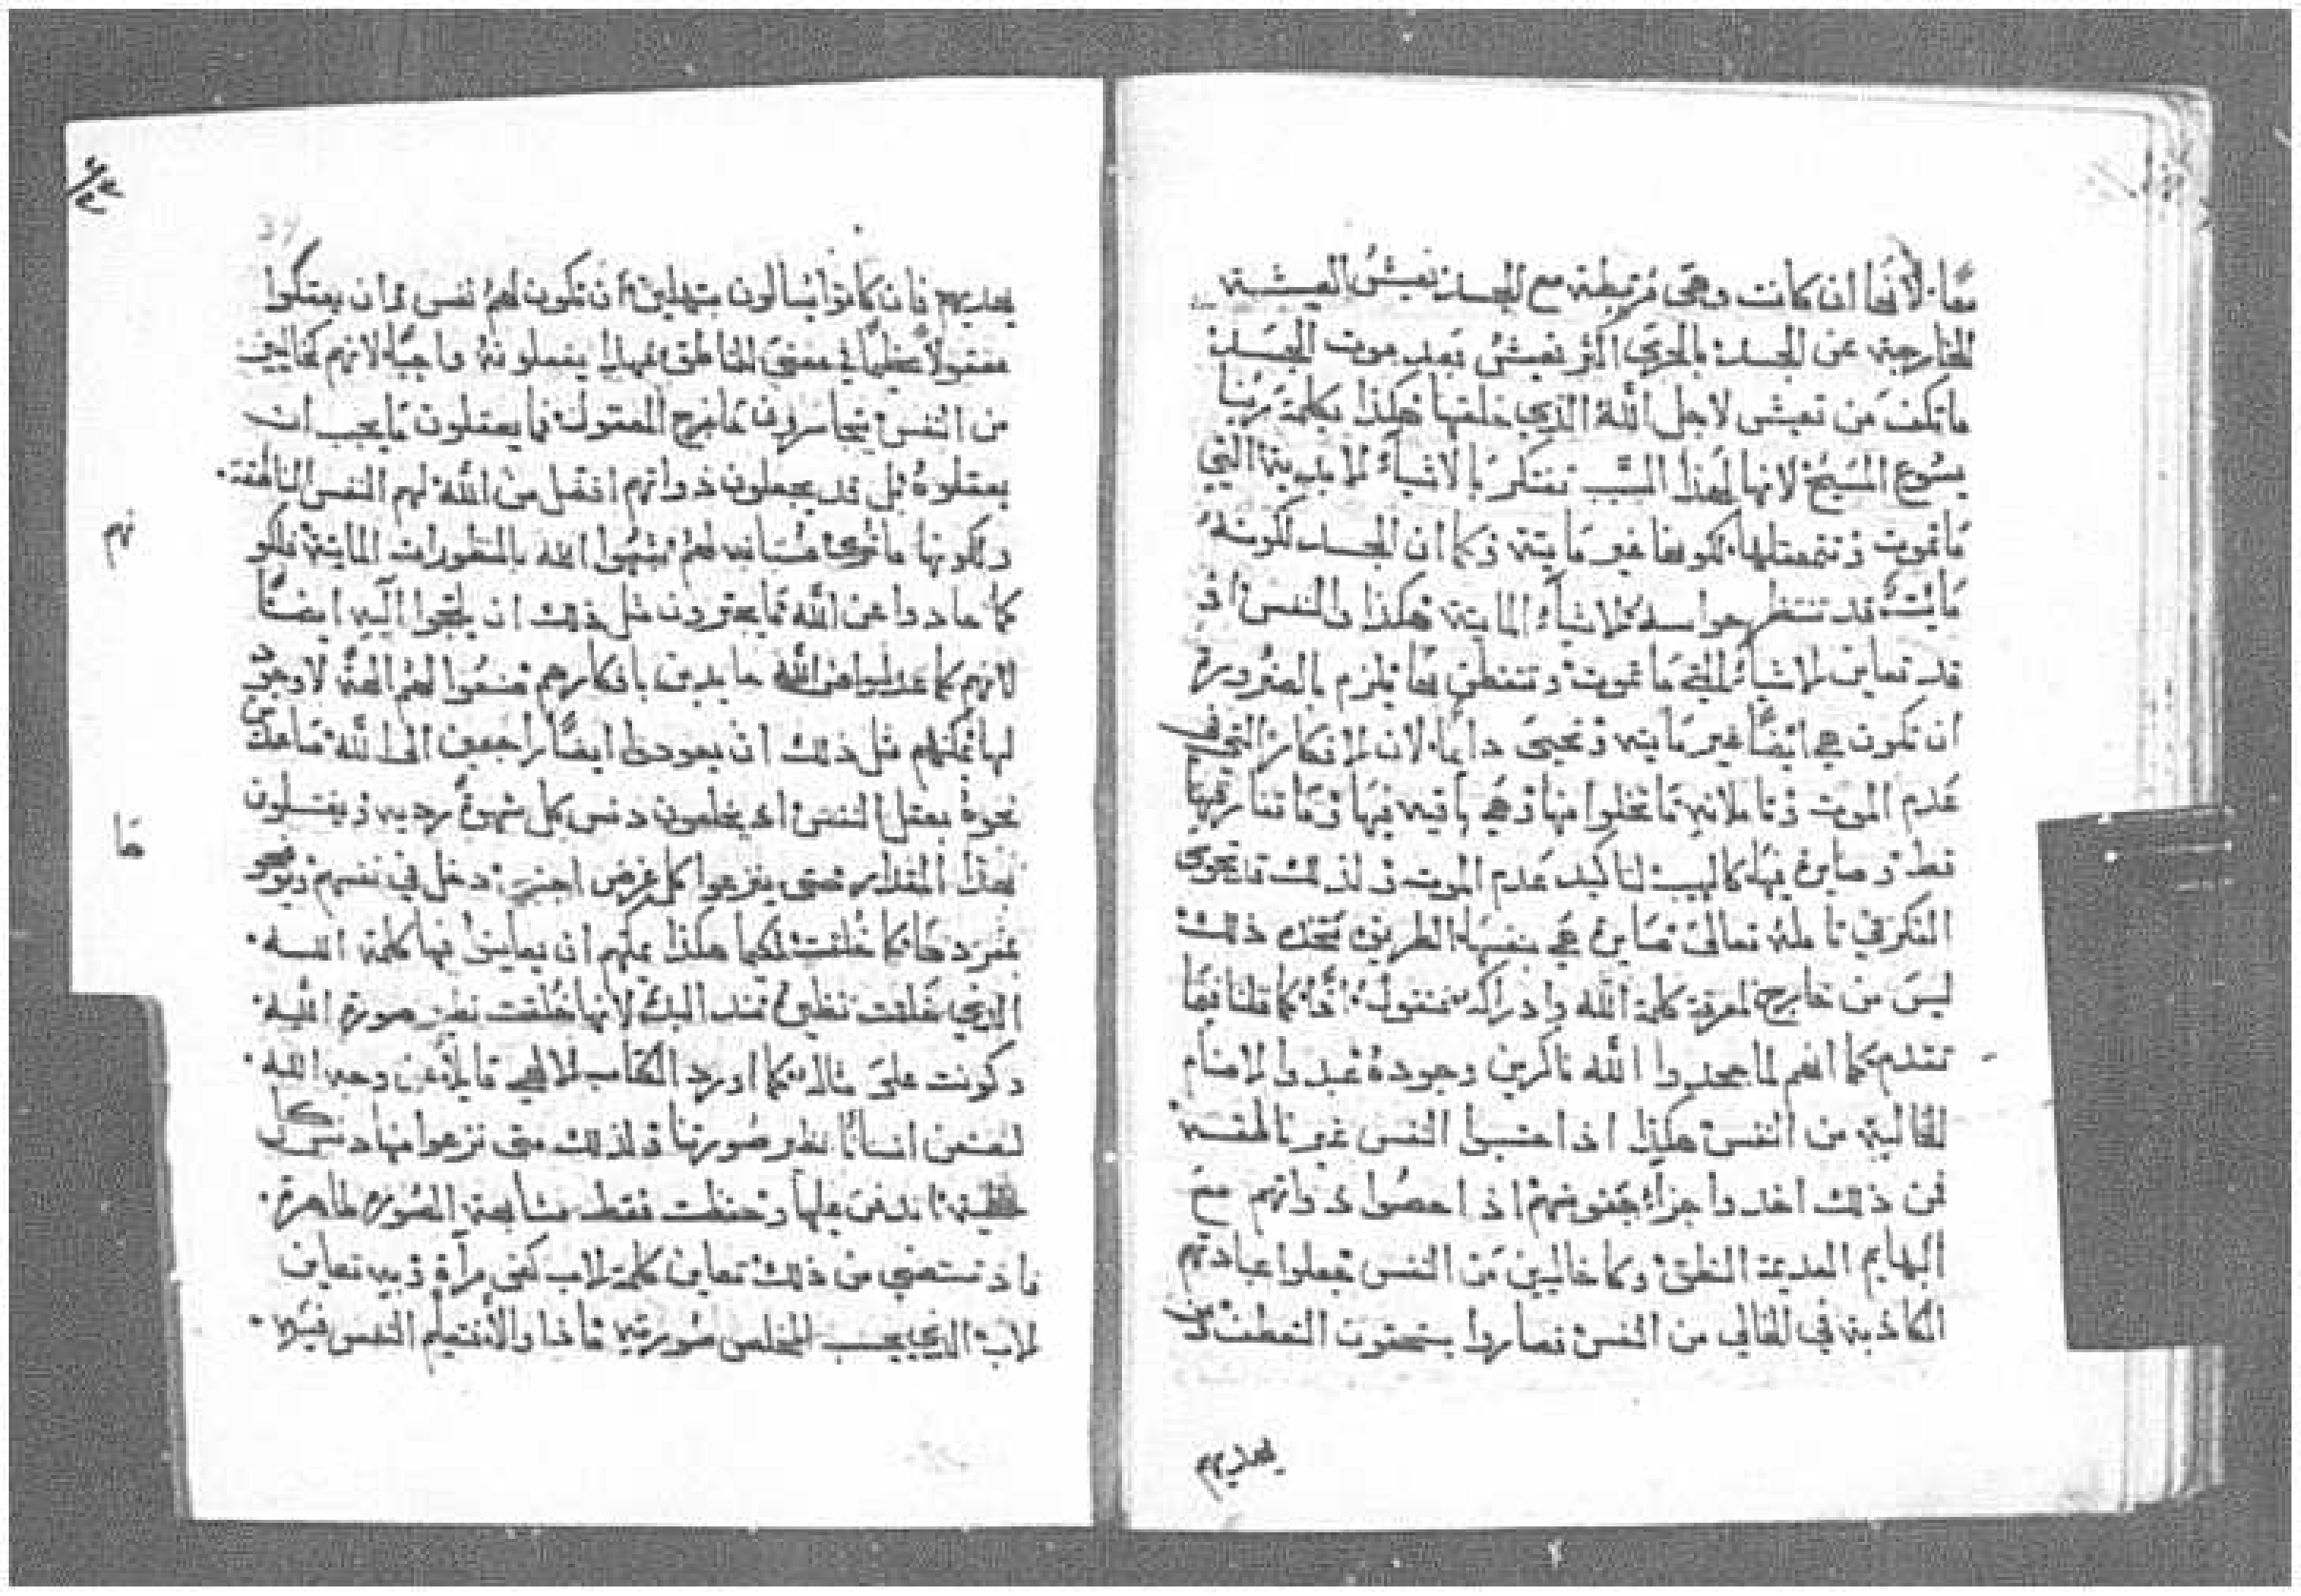 معًا. لأنها ان كانت وهي مرتبطة مع الجسد تعيش العيشة
الخارجة عن الجسد بالحري اكثر تعيش بعد موت الجسد
ما تكف من تعيش لاجل الله الذي خلقها هكذا بكلمة ربنا
يسوع المسيح لانها لهذا السبب تفتكر بالاشياء الابدية التي
ما تموت وتتمثلها لكونها غير مايتة وكما ان الجسد لكونه
مايت قد تنتظر حواسه الاشياء المايتة هكذا والنفس اذ
قد تعاين الاشياء التي ما تموت وتتفطن بها يلزم بالضرورة
ان تكون هي ايضًا غير مايته وتحيى دايما. لان الافكار التي في
عدم الموت وتاملاته ما تخلوا منها وهي باقيه فيها وما تفارقها
قط وصايرة فيها كالهيب لتاكيد عدم الموت ولذلك تحوى
التفكر في تامله تعالى صايرة هي بنفسها الطريق تتخذ ذلك
ليس من خارج لمعرفة كلمة الله وادراكه. فنقول اذًا كما قلنا فيما
تقدم كما انهم لما جحدوا الله ناكرين وجوده عبدوا الاصنام
الخالية من النفس هكذا اذ احتسبوا النفس غير ناطقة
فمن ذلك اخدوا جزاء جنونهم اذ احصوا ذواتهم مع
البهايم العديمة النطق وكما خاليين من النفس جعلوا عبادتهم
الكاذبة في الخالي من النفس فصاروا يستحقون التعطف
بعديهم
34
بعديهم فان كانوا يسالون متهملين ان تكون لهم نفس وان يمتلكوا
معقولاً عظيمًا في معنى الناطق فما يفعلونه واجبًا لانهم كخاليين
من النفس يتجاسرون خارج المعقول فما يعقلون ما يجب ان
يعقلوه بل قد يجعلون ذواتهم افضل من الله لهم النفس الناطقة.
ولكونها ما ترى لهم شبهوا الله بالمنظورات المايتة
كما حادوا عن الله ما يقدرون مثل ذلك ان يلتجوا اليه ايضًا
لانهم كما عدلوا عن الله حايدين بافكارهم صنعوا لهم الهة لا وجود
لها يمكنهم مثل ذلك ان يعودوا ايضًا راجعين الى الله صاعدين
نحوه بعقل النفس اذ يخلعون دنس كل شهوة رديه ويغتسلون
بهذا المقدار حتى ينزعوا كل غرض اجنبي دخل في نفسهم
بمفردها كما خلقت لكيما هكذا يمكنهم ان يعاينوا فيها كلمة الله.
الذي خلقت نظيره منذ البدء لانها خلقت نظير صورة الله.
وكونت على مثاله كما اورد الكتاب الالهي قايلا عن وجه الله.
لنصنعن انسانًا نظير صورتنا ولذلك متى نزعوا منها دنس كل
خطية اندفن عليها وحفظت فقط مشابهة الصورة طاهرة.
فاذ تستضي من ذلك تعاين كلمة الاب كفي مرآة وبه تعاين
الاب الذي بحسب المخلص صورته فاذا والا فتعلم النفس
نهم
ها